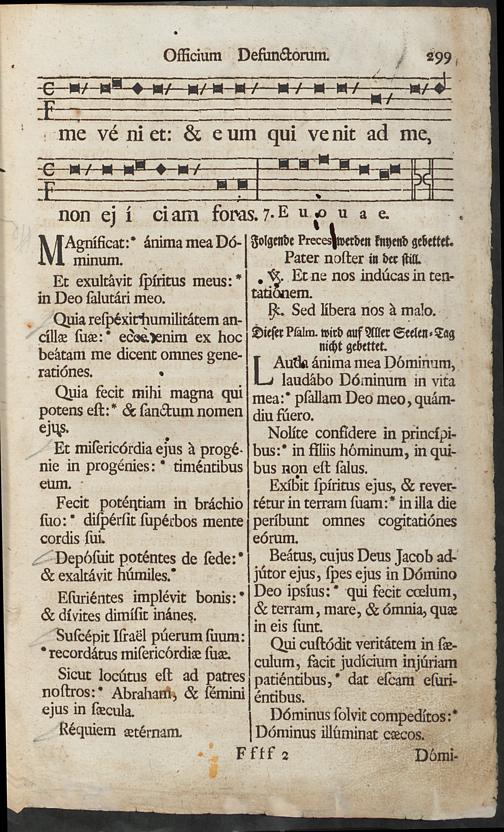 Officium Defunctorum. 299
me vé ni et: & eum qui venit ad me,
non ej í ciam foras. 7. E u o u a e.
MAgníficat:* ánima mea Dó-
minum.
Et exultávit ſpíritus meus:*
in Deo ſalutári meo.
Quia reſpéxit humilitátem an-
cíllæ ſuæ:* ecce enim ex hoc
beátam me dicent omnes gene-
ratiónes.
Quia fecit mihi magna qui
potens eſt:* & ſanctum nomen
ejus.
Et miſericórdia ejus à progé-
nie in progénies:* timéntibus
eum.
Fecit poténtiam in bráchio
ſuo:* diſpérſit ſupérbos mente
cordis ſui.
Depóſuit poténtes de ſede:*
& exaltávit húmiles.
Eſuriéntes implévit bonis:*
& dívites dimíſit inánes.
Suſcépit Iſraël púerum ſuum:
* recordátus miſericórdiæ ſuæ.
Sicut locútus eſt ad patres
noſtros:* Abraham, & ſémini
ejus in ſæcula.
Réquiem ætérnam.
Folgende Preces werden knyend gebettet.
Pater noſter in der ſtill.
℣. Et ne nos indúcas in ten-
tatiónem.
℟. Sed líbera nos à malo.
Dieſer Pſalm. wird auf Aller Seelen-Tag
nicht gebettet.
LAuda ánima mea Dóminum,
laudábo Dóminum in vita
mea:* pſallam Deo meo, quám-
diu fúero.
Nolíte confidere in princípi-
bus:* in fíliis hóminum, in qui-
bus non eſt ſalus.
Exíbit ſpíritus ejus, & rever-
tétur in terram ſuam:* in illa die
períbunt omnes cogitatiónes
eórum.
Beátus, cujus Deus Jacob ad-
jútor ejus, ſpes ejus in Dómino
Deo ipsíus:* qui fecit cœlum,
& terram, mare, & ómnia, quæ
in eis ſunt.
Qui cuſtódit veritátem in ſæ-
culum, facit judícium injúriam
patiéntibus,* dat eſcam eſuri-
éntibus.
Dóminus ſolvit compedítos:*
Dóminus illúminat cæcos.
Ffff 2 Dómi-